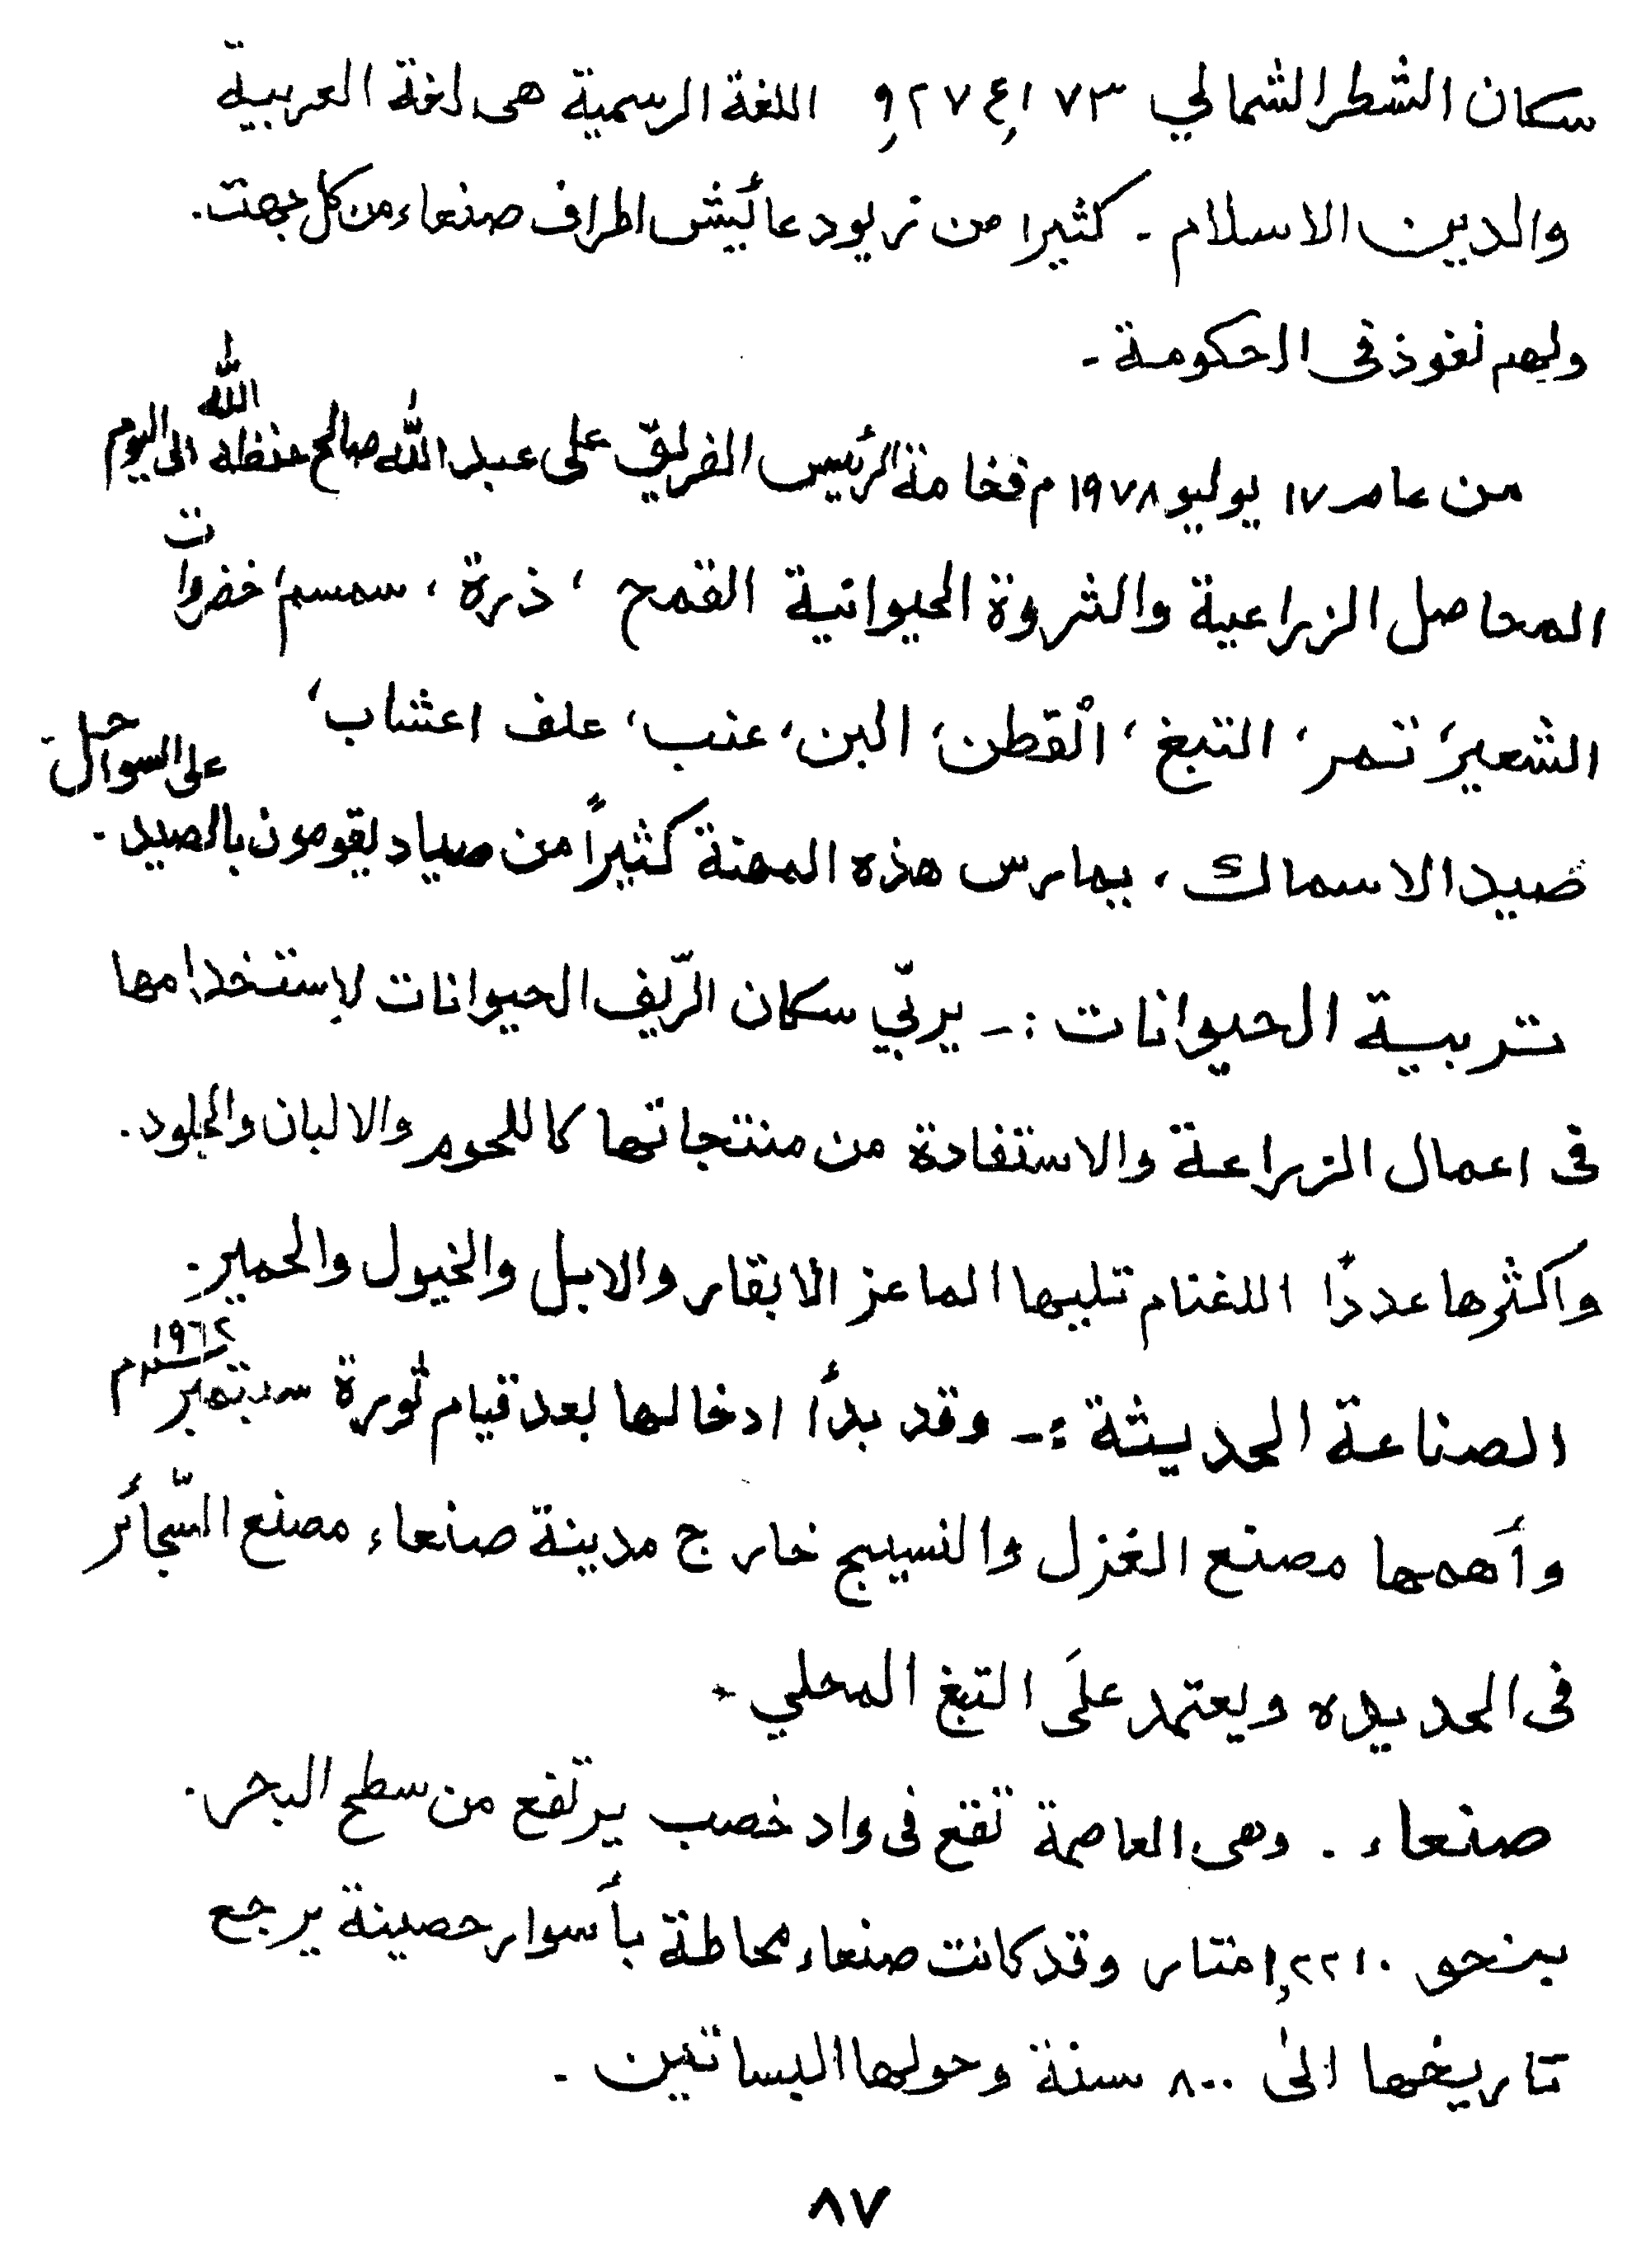 سكان الشطر الشمالي ٩,٢٧٤,١٧٣ اللغة الرسمية هى لغة العربية
والدين الاسلام - كثيرا من زيود عائيش اطراف صنعاء من كل جهت.
ولهم نفوذ فى الحكومة -
من عام ١٧ يوليو ١٩٧٨ م فخامة الرئيس الفريق على عبد الله صالح حفظه الله الى اليوم
المحاصل الزراعية والثروة الحيوانية القمح ، ذرة ، سمسم، خضروات
الشعير، تمر، التبغ ، القطن، البن، عنب، علف اعشاب،
صيد الاسماك ، يمارس هذه المهنة كثيراً من صياد يقومون بالصيد على السواحل -
تربية الحيوانات :- يربّي سكان الرّيف الحيوانات لإستخدامها
فى اعمال الزراعة والاستفادة من منتجاتها كاللحوم والالبان والجلود.
واكثرها عددًا اللغنام تليها الماعز الابقار والابل والخيول والحمير.
الصناعة الحديثة :- وقد بدأ ادخالها بعد قيام ثورة سبتمبر ١٩٦٢م
وأهمها مصنع الغزل والنسيج خارج مدينة صنعاء مصنع السّجائر
فى الحديده ويعتمد علَى التبغ المحلي -
صنعاء . وهى العاصمة تقع فى واد خصب يرتفع من سطح البحر.
بنحو ٢٢١٠ امتار وقد كانت صنعاء محاطة بأسوار حصينة يرجع
تاريخها الىٰ ٨٠٠ سنة وحولها البساتين -
٨٧